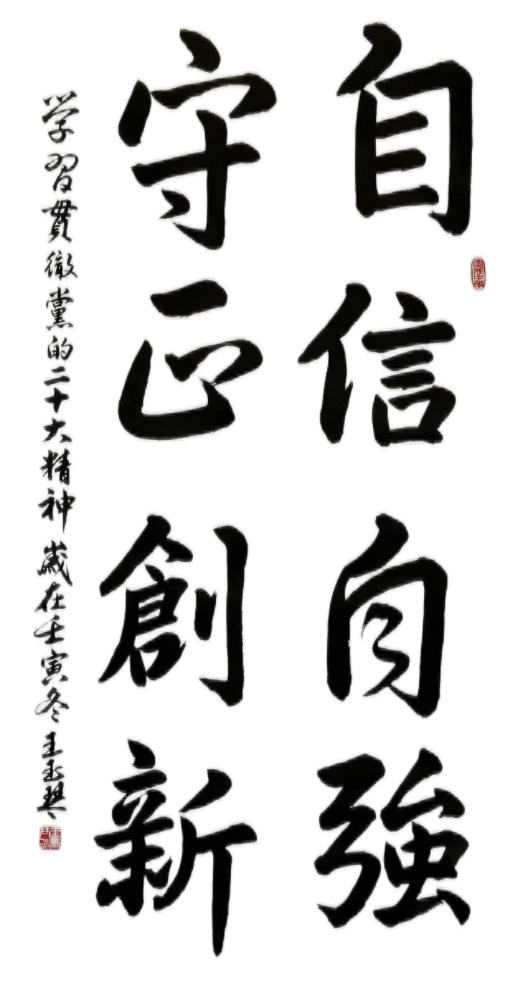 自信自強
守正創新
学習貫徹黨的二十大精神 歲在壬寅冬 王玉琴